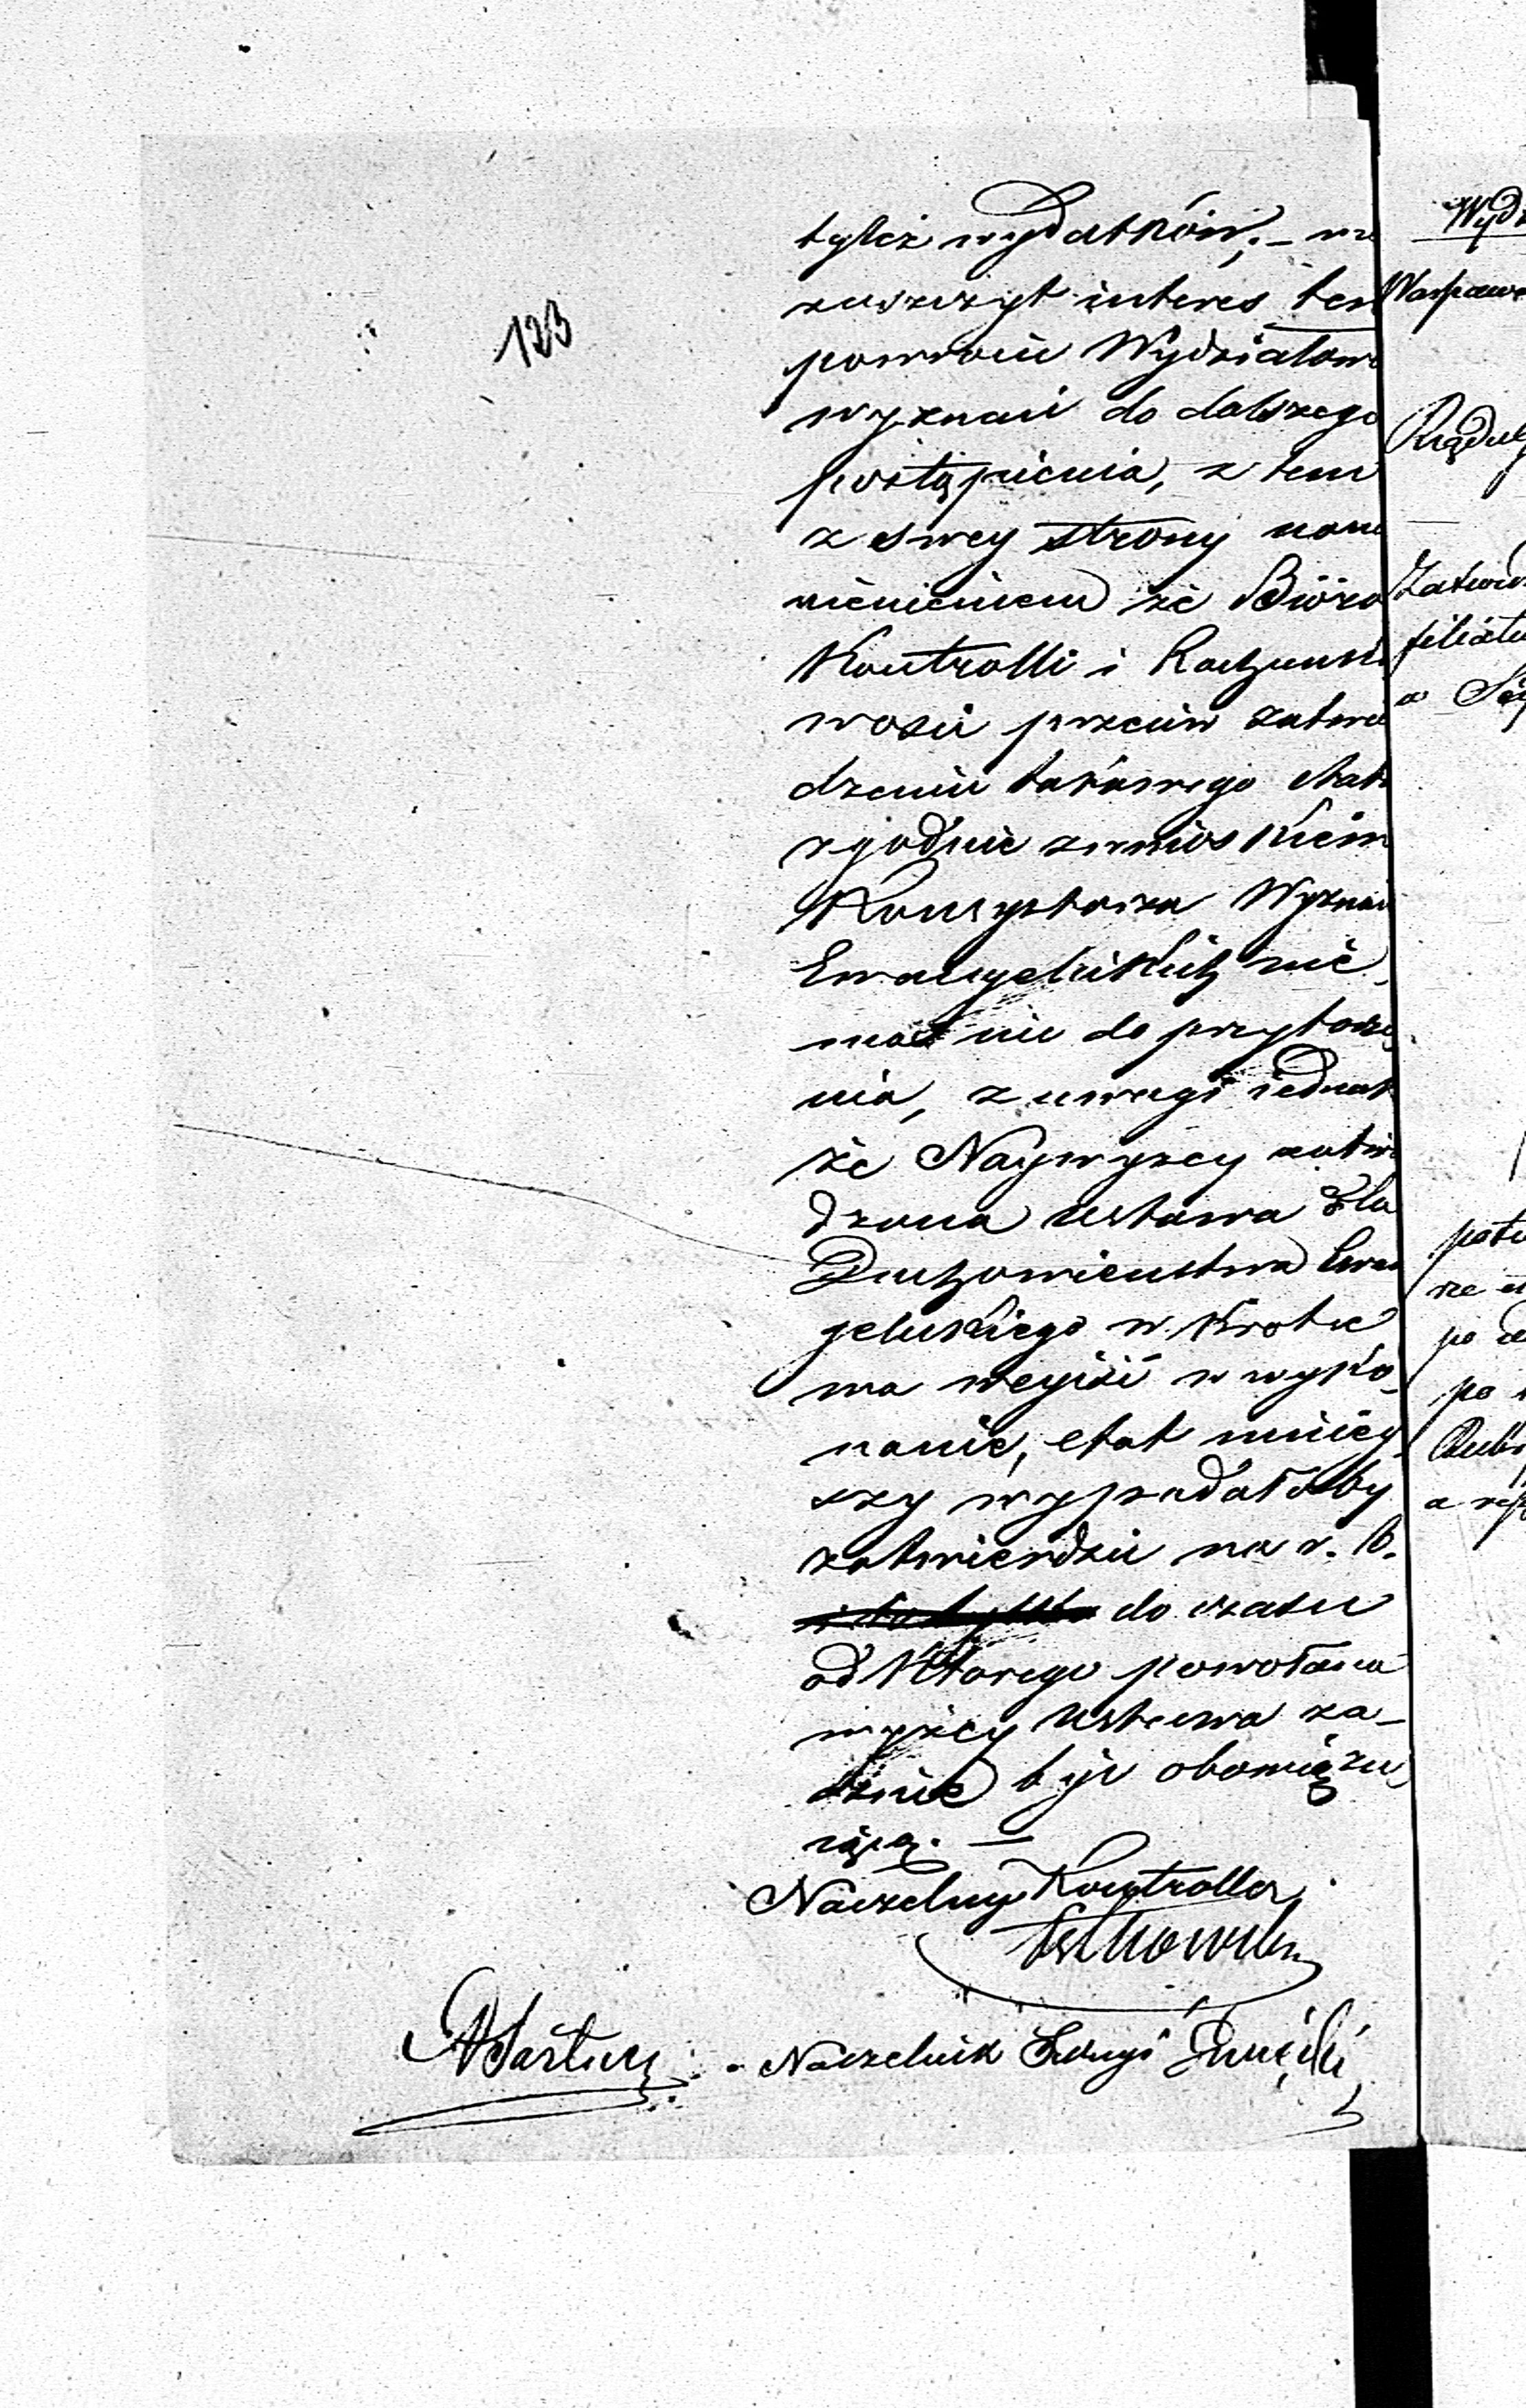 123
tyleż wydatków; – ma
zaszczyt interes ten
powrócić Wydziałowi
wyznań do dalszego
postąpienia, z tem
z swey strony nad
mienieniem że Bióro
Kontrolli i Rachunko
wości przeciw zatwier
dzeniu takowego etatu
zgodnie z wnioskiem
Konsystorza Wyznań
Ewangelickich nie
ma nic do przytocze
nia, z uwagi iednak
że Naywyżey zatwier
dzona Ustawa dla
Duchowieństwa Ewan
gelickiego w krotce
ma weyiść w wyko
nanie, etat niniey
szy wypadałoby
zatwierdzić na r. b.
do czasu
od którego powołana
wyżey Ustawa za-
cznie być obowiązu
iącą. —
Naczelny Kontroller
Naczelnik Sekcyi
Wydz
Warszawa
Rządu
Zatwier
filiału
w
po
po
a